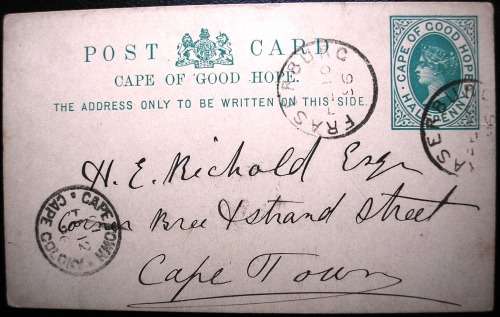 POST CARD
CAPE OF GOOD HOPE.
THE ADDRESS ONLY TO BE WRITTEN ON THIS SIDE.
CAPE OF GOOD HOPE
HALF PENNY
FRASERBURG
96
FRASERBURG
H. E. Richold Esqr
Corner Bree & Strand Street
Cape Town
CAPE TOWN
CAPE COLONY